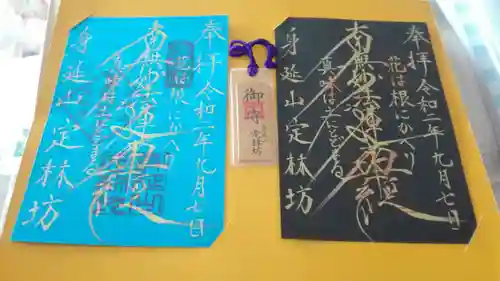 奉拝 令和二年九月七日
花は根にかへり
南無妙法蓮華経
真味は土にとどまる
身延山 定林坊
御守
定林坊
奉拝 令和二年九月七日
花は根にかへり
南無妙法蓮華経
真味は土にとどまる
身延山 定林坊